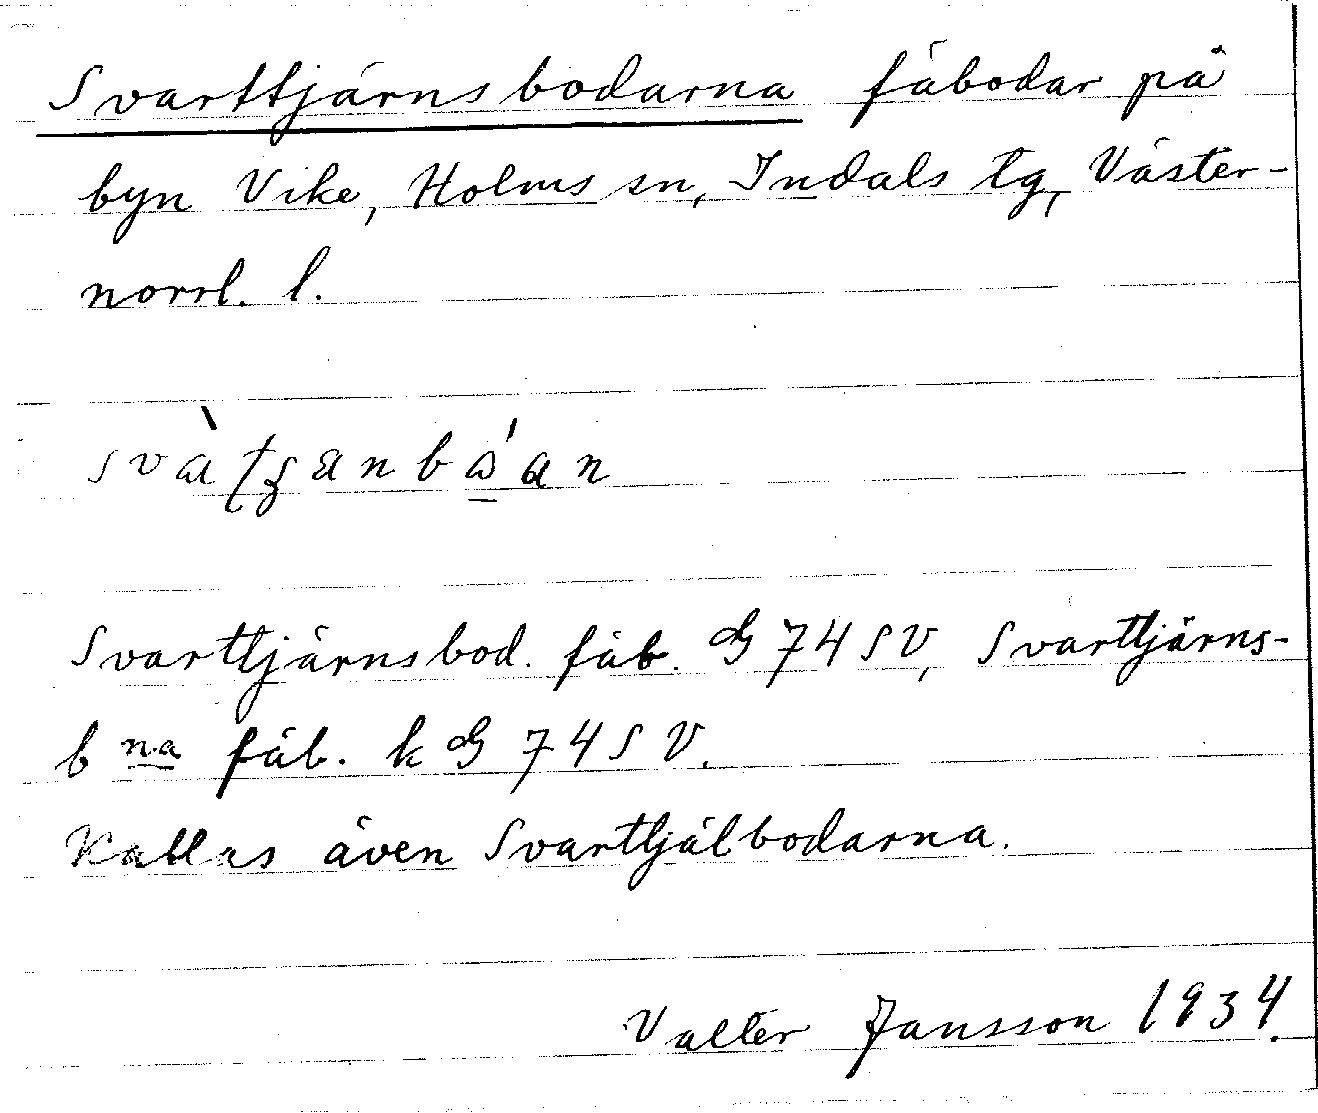 Svarttjärnsbodarna fäbodar på
byn Vike, Holms sn, Indals tg, Väster-
norrl. l.
Svarttjärnsbod. fäb. G 74 SV, Svarttjärns-
b na fäb. k G 74 SV.
Kallas även Svarttjälbodarna.
Valter Jansson 1934.